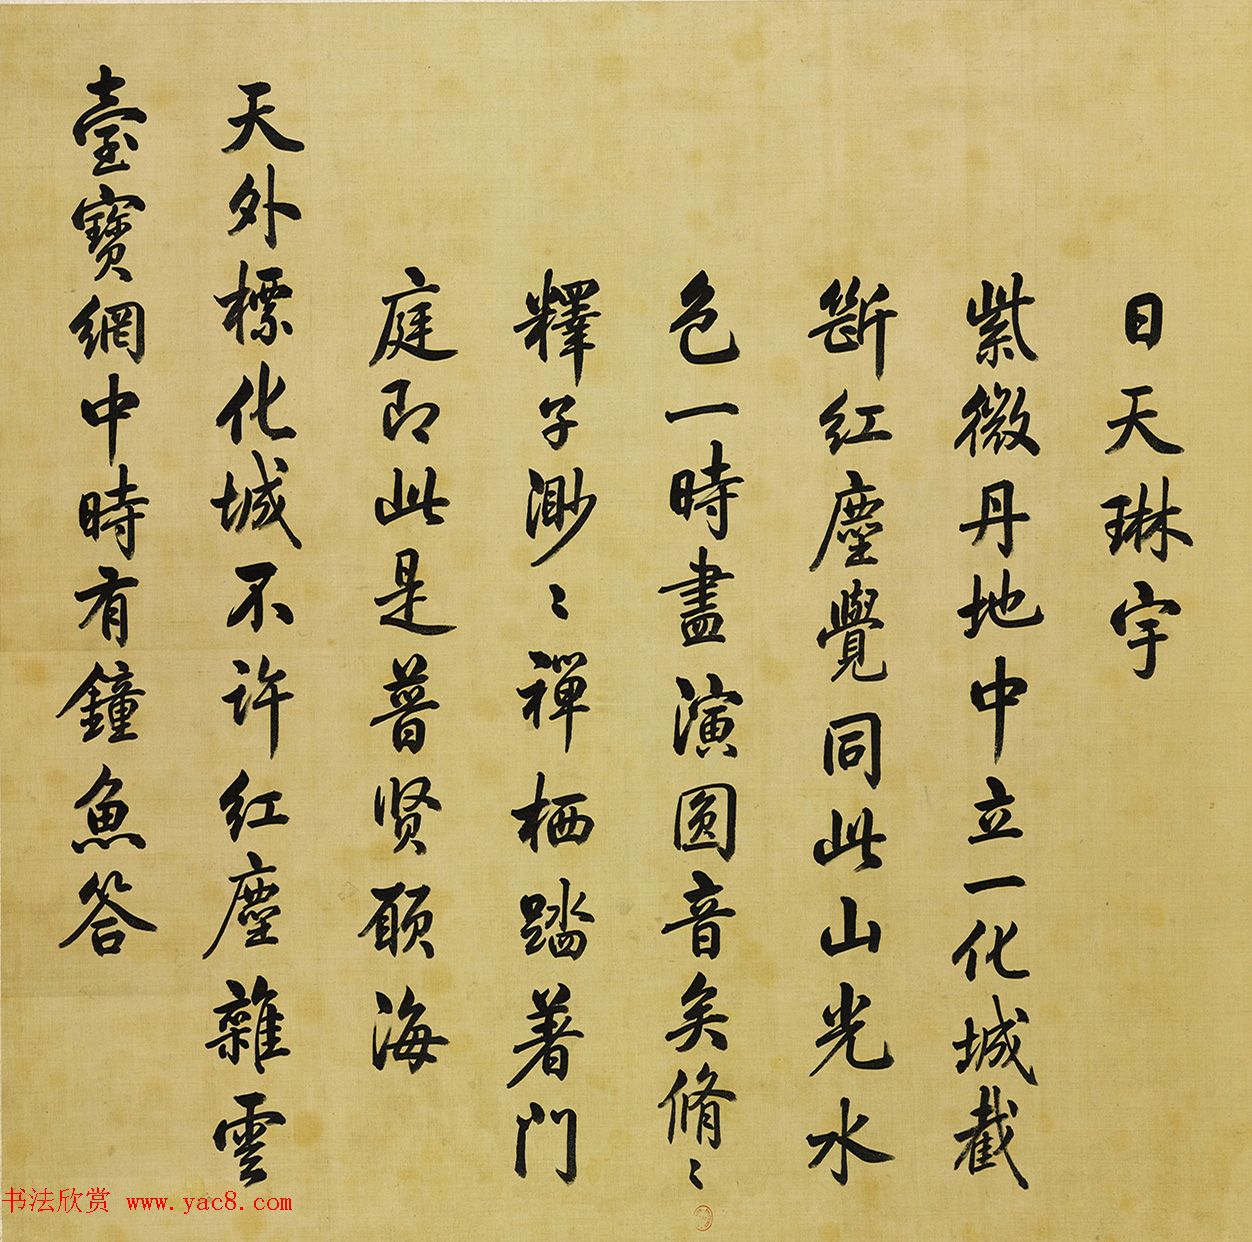 日天琳宇
紫微丹地中立一化城截
斷红塵覺同此山光水
色一時盡演圓音矣脩〻
釋子渺〻禪栖踏著門
庭即此是普贤願海
天外標化城不許红塵雜雲
臺寶網中時有鐘魚答
书法欣赏 www.yac8.com